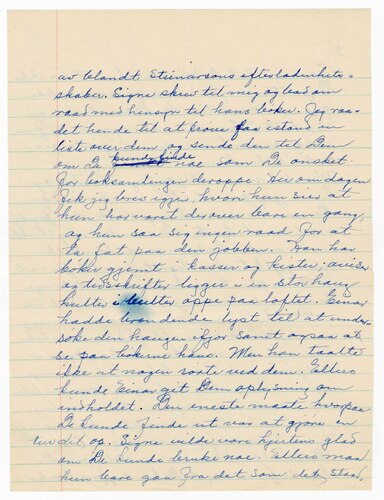 av blandt Steinarsons efterladenhets-
skaber. Signe skrev til mig og bad om
raad med hensyn til hans bøker. Jeg raa-
det hende til at prøve faa istand en
liste over dem og sende den til Dem
om De kunde finde noe som De ønsket
for boksamlingen deroppe. Her om dagen
fik jeg brev igjen, hvori hun sier at
hun har varit der over bare en gang,
og hun saa sig ingen raad for at
ta fat paa den jobben. Han har
bøker gjemt i kasser og kister, aviser
og tidsskrifter legger i en stor haug
hulter i bulter oppe paa loftet. Einar
hadde brændende lyst til at under-
søke den haugen ifjor samt ogsaa at
se paa bøkerne hans. Men han taalte
ikke at nogen rørte ved dem. Ellers
kunde Einar git Dem oplysning om
indholdet. Den eneste maate hvorpaa
De kunde finde ut var at gjøre en
tur dit op. Signe vilde være hjertens glad
om De kunde bruke noe. Ellers maa
hun bare gaa fra det som det staar.